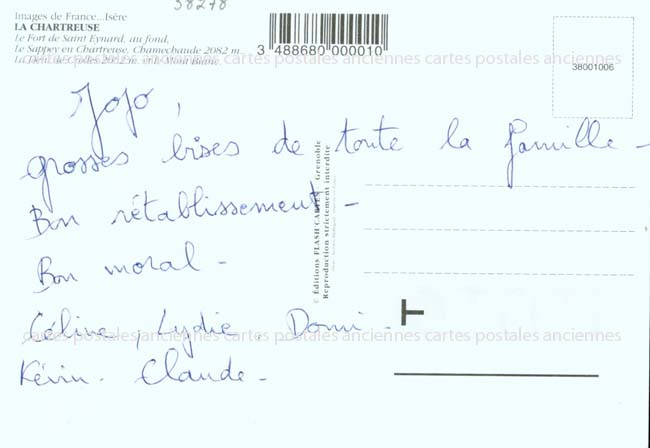 38278
Images de France...Isère
LA CHARTREUSE
Le Fort de Saint Eynard, au fond,
Le Sappey en Chartreuse, Chamechaude 2082 m.
La Dent de Crolles 2062 m. et le Mont Blanc.
3 488680 000010
38001006
cartes postales anciennes cartes postales anciennes cartes postales anciennes
Jojo,
grosses bises de toute la famille -
Bon rétablissement -
Bon moral -
Céline, Lydie, Domi -
Kévin - Claude -
© Éditions FLASH CARTES Grenoble
Reproduction strictement interdite
T
cartes postales anciennes cartes postales anciennes cartes postales anciennes